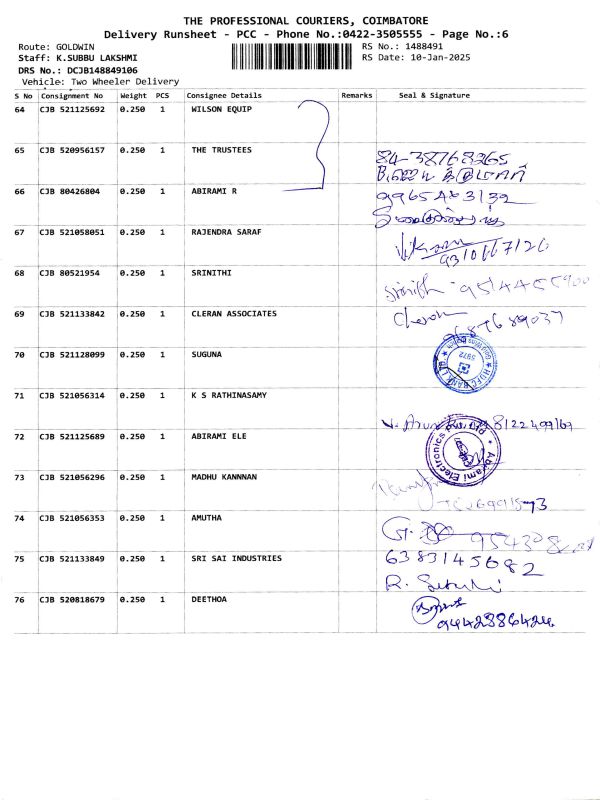 THE PROFESSIONAL COURIERS, COIMBATORE
Delivery Runsheet - PCC - Phone No.:0422-3505555 - Page No.:6
Route: GOLDWIN
RS No.: 1488491
Staff: K.SUBBU LAKSHMI
RS Date: 10-Jan-2025
DRS No.: DCJB148849106
Vehicle: Two Wheeler Delivery
S No Consignment No Weight PCS Consignee Details Remarks Seal & Signature
64 CJB 521125692 0.250 1 WILSON EQUIP
65 CJB 520956157 0.250 1 THE TRUSTEES
66 CJB 80426804 0.250 1 ABIRAMI R
67 CJB 521058051 0.250 1 RAJENDRA SARAF
68 CJB 80521954 0.250 1 SRINITHI
69 CJB 521133842 0.250 1 CLERAN ASSOCIATES
70 CJB 521128099 0.250 1 SUGUNA
HDFC BANK LTD
5972
71 CJB 521056314 0.250 1 K S RATHINASAMY
72 CJB 521125689 0.250 1 ABIRAMI ELE
Abirami Electronics
73 CJB 521056296 0.250 1 MADHU KANNNAN
74 CJB 521056353 0.250 1 AMUTHA
75 CJB 521133849 0.250 1 SRI SAI INDUSTRIES 6383145682
76 CJB 520818679 0.250 1 DEETHOA
9442386424